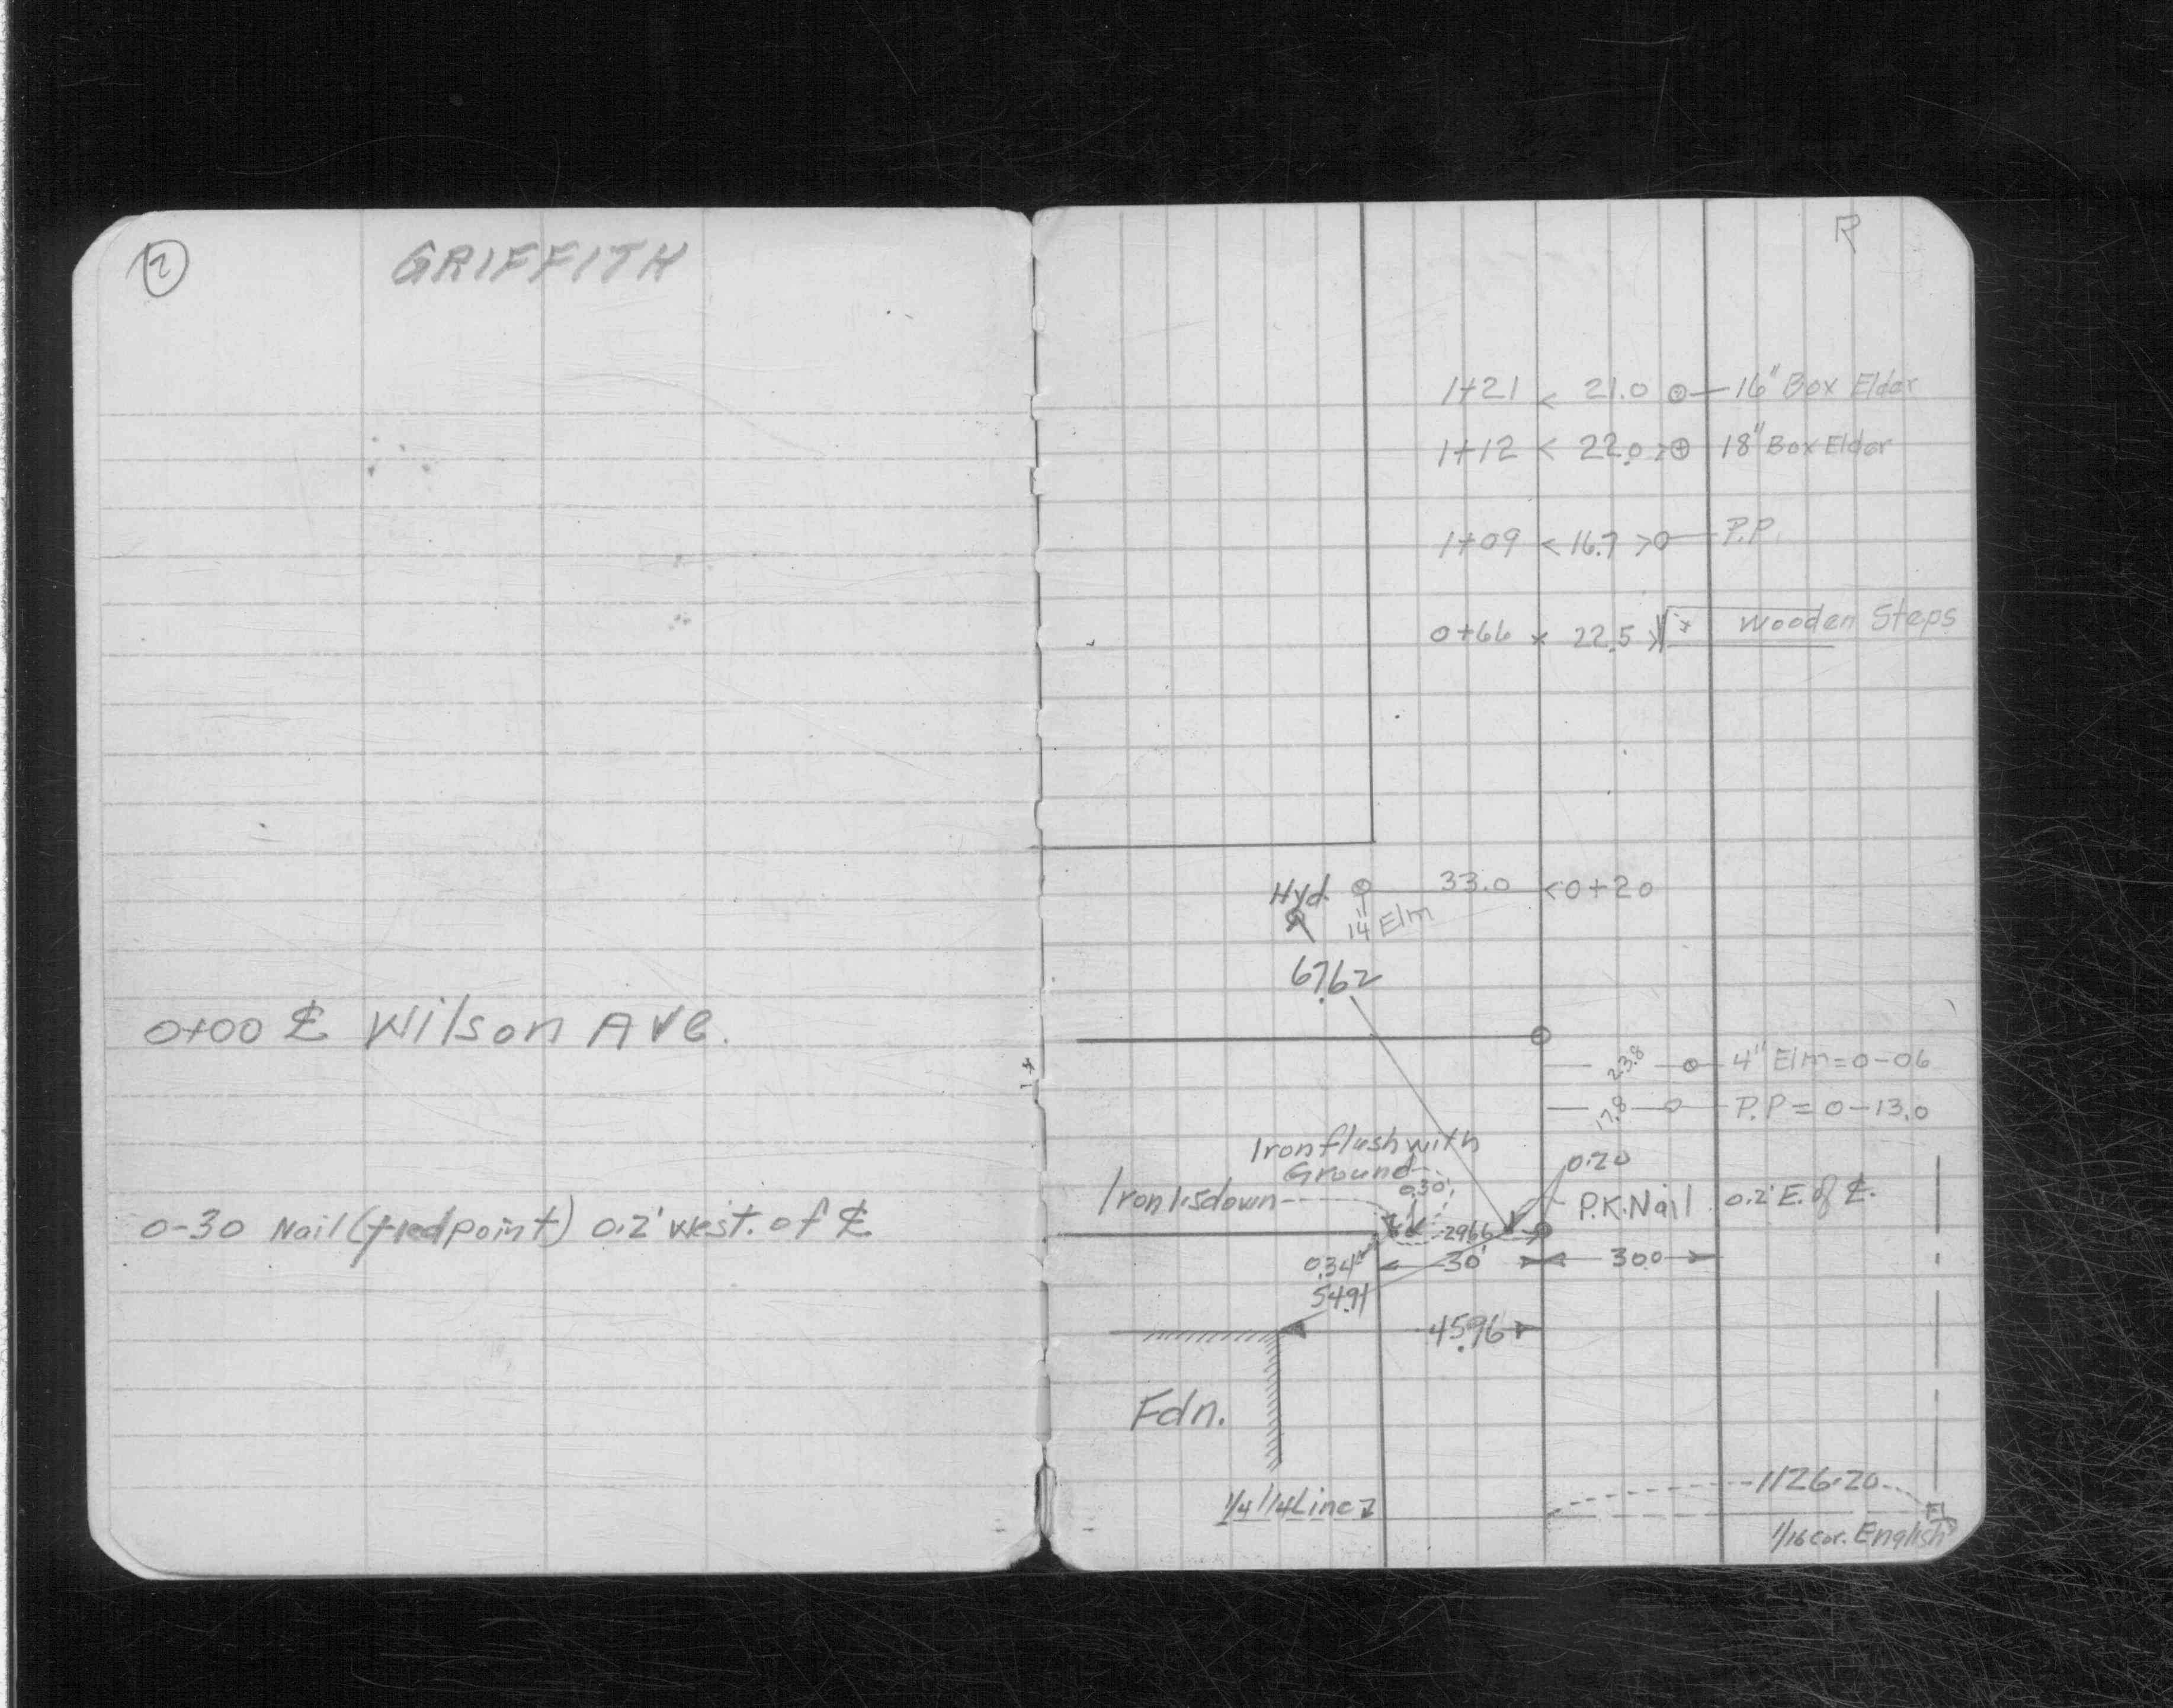 2
GRIFFITH
0+00 ℄ Wilson Ave.
0-30 Nail (tied point) 0.2' west. of ℄
R
1+21 < 21.0 16" Box Elder
1+12 < 22.0 > 18" Box Elder
1+09 < 16.7 > P.P.
0+66 × 22.5 > Wooden Steps
Hyd. 33.0 < 0+20
14" Elm
67.62
23.8 4" Elm = 0-06
17.8 P.P = 0-13.0
Iron flush with
Ground
0.20
0.30'
Iron 1.5 down
P.K. Nail 0.2' E. of ℄.
29.66
0.34 30' 30.0
54.91
45.96
Fdn.
1/4 1/4 Line
1126.20
1/16 cor. English